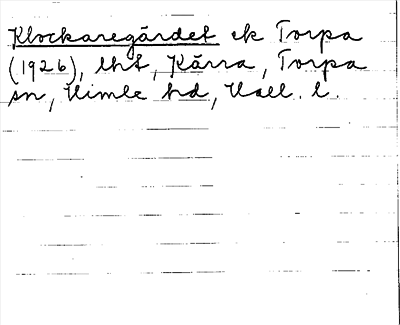 Klockaregärdet ek Torpa
(1926), lht, Kärra, Torpa
sn, Himle hd, Hall. l.